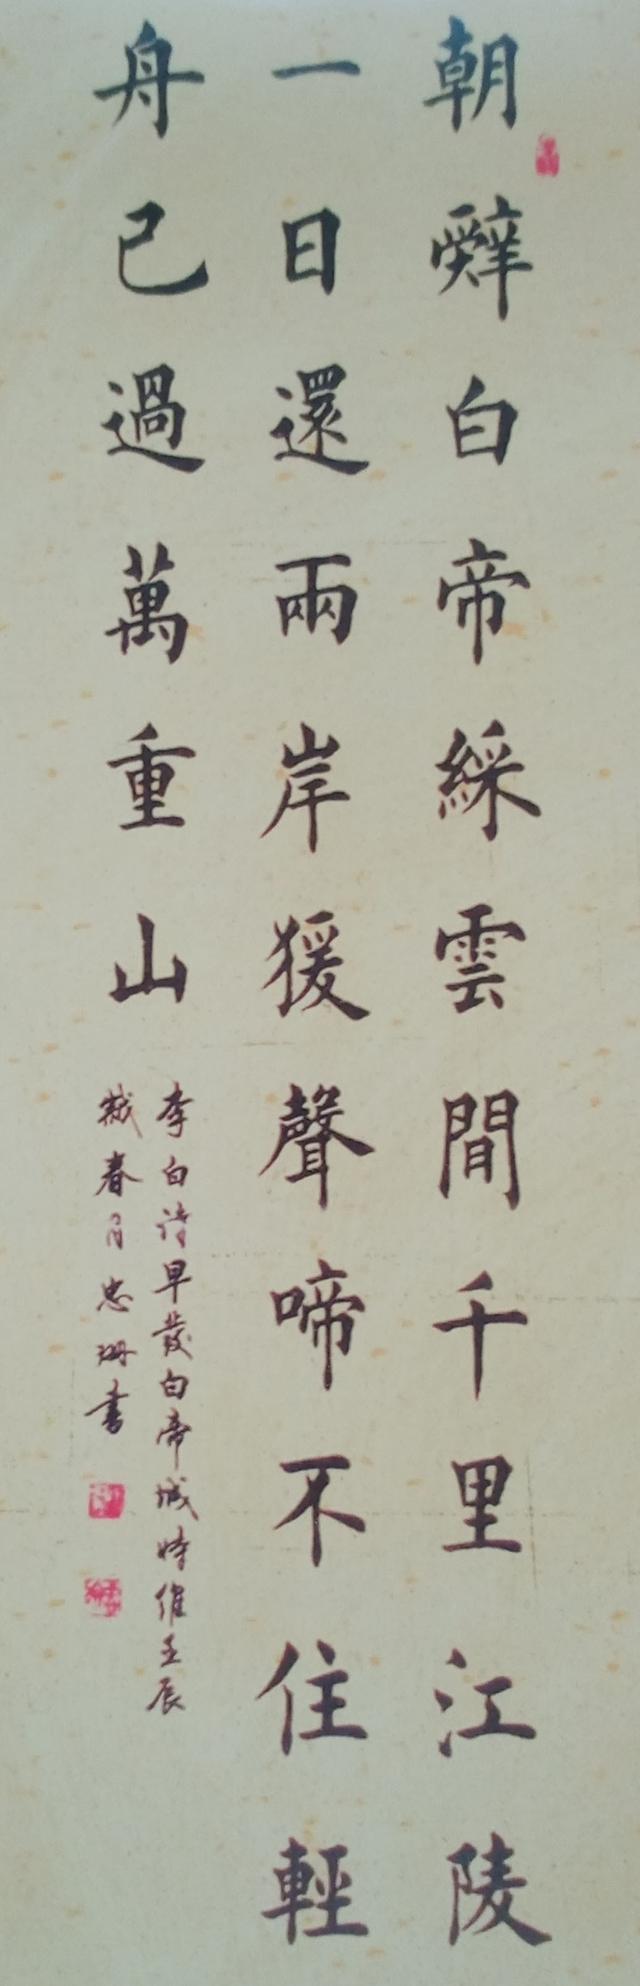 朝辤白帝綵雲間千里江陵
一日還兩岸猨聲啼不住輕
舟已過萬重山
李白詩早發白帝城時維壬辰
歲春月忠珊書